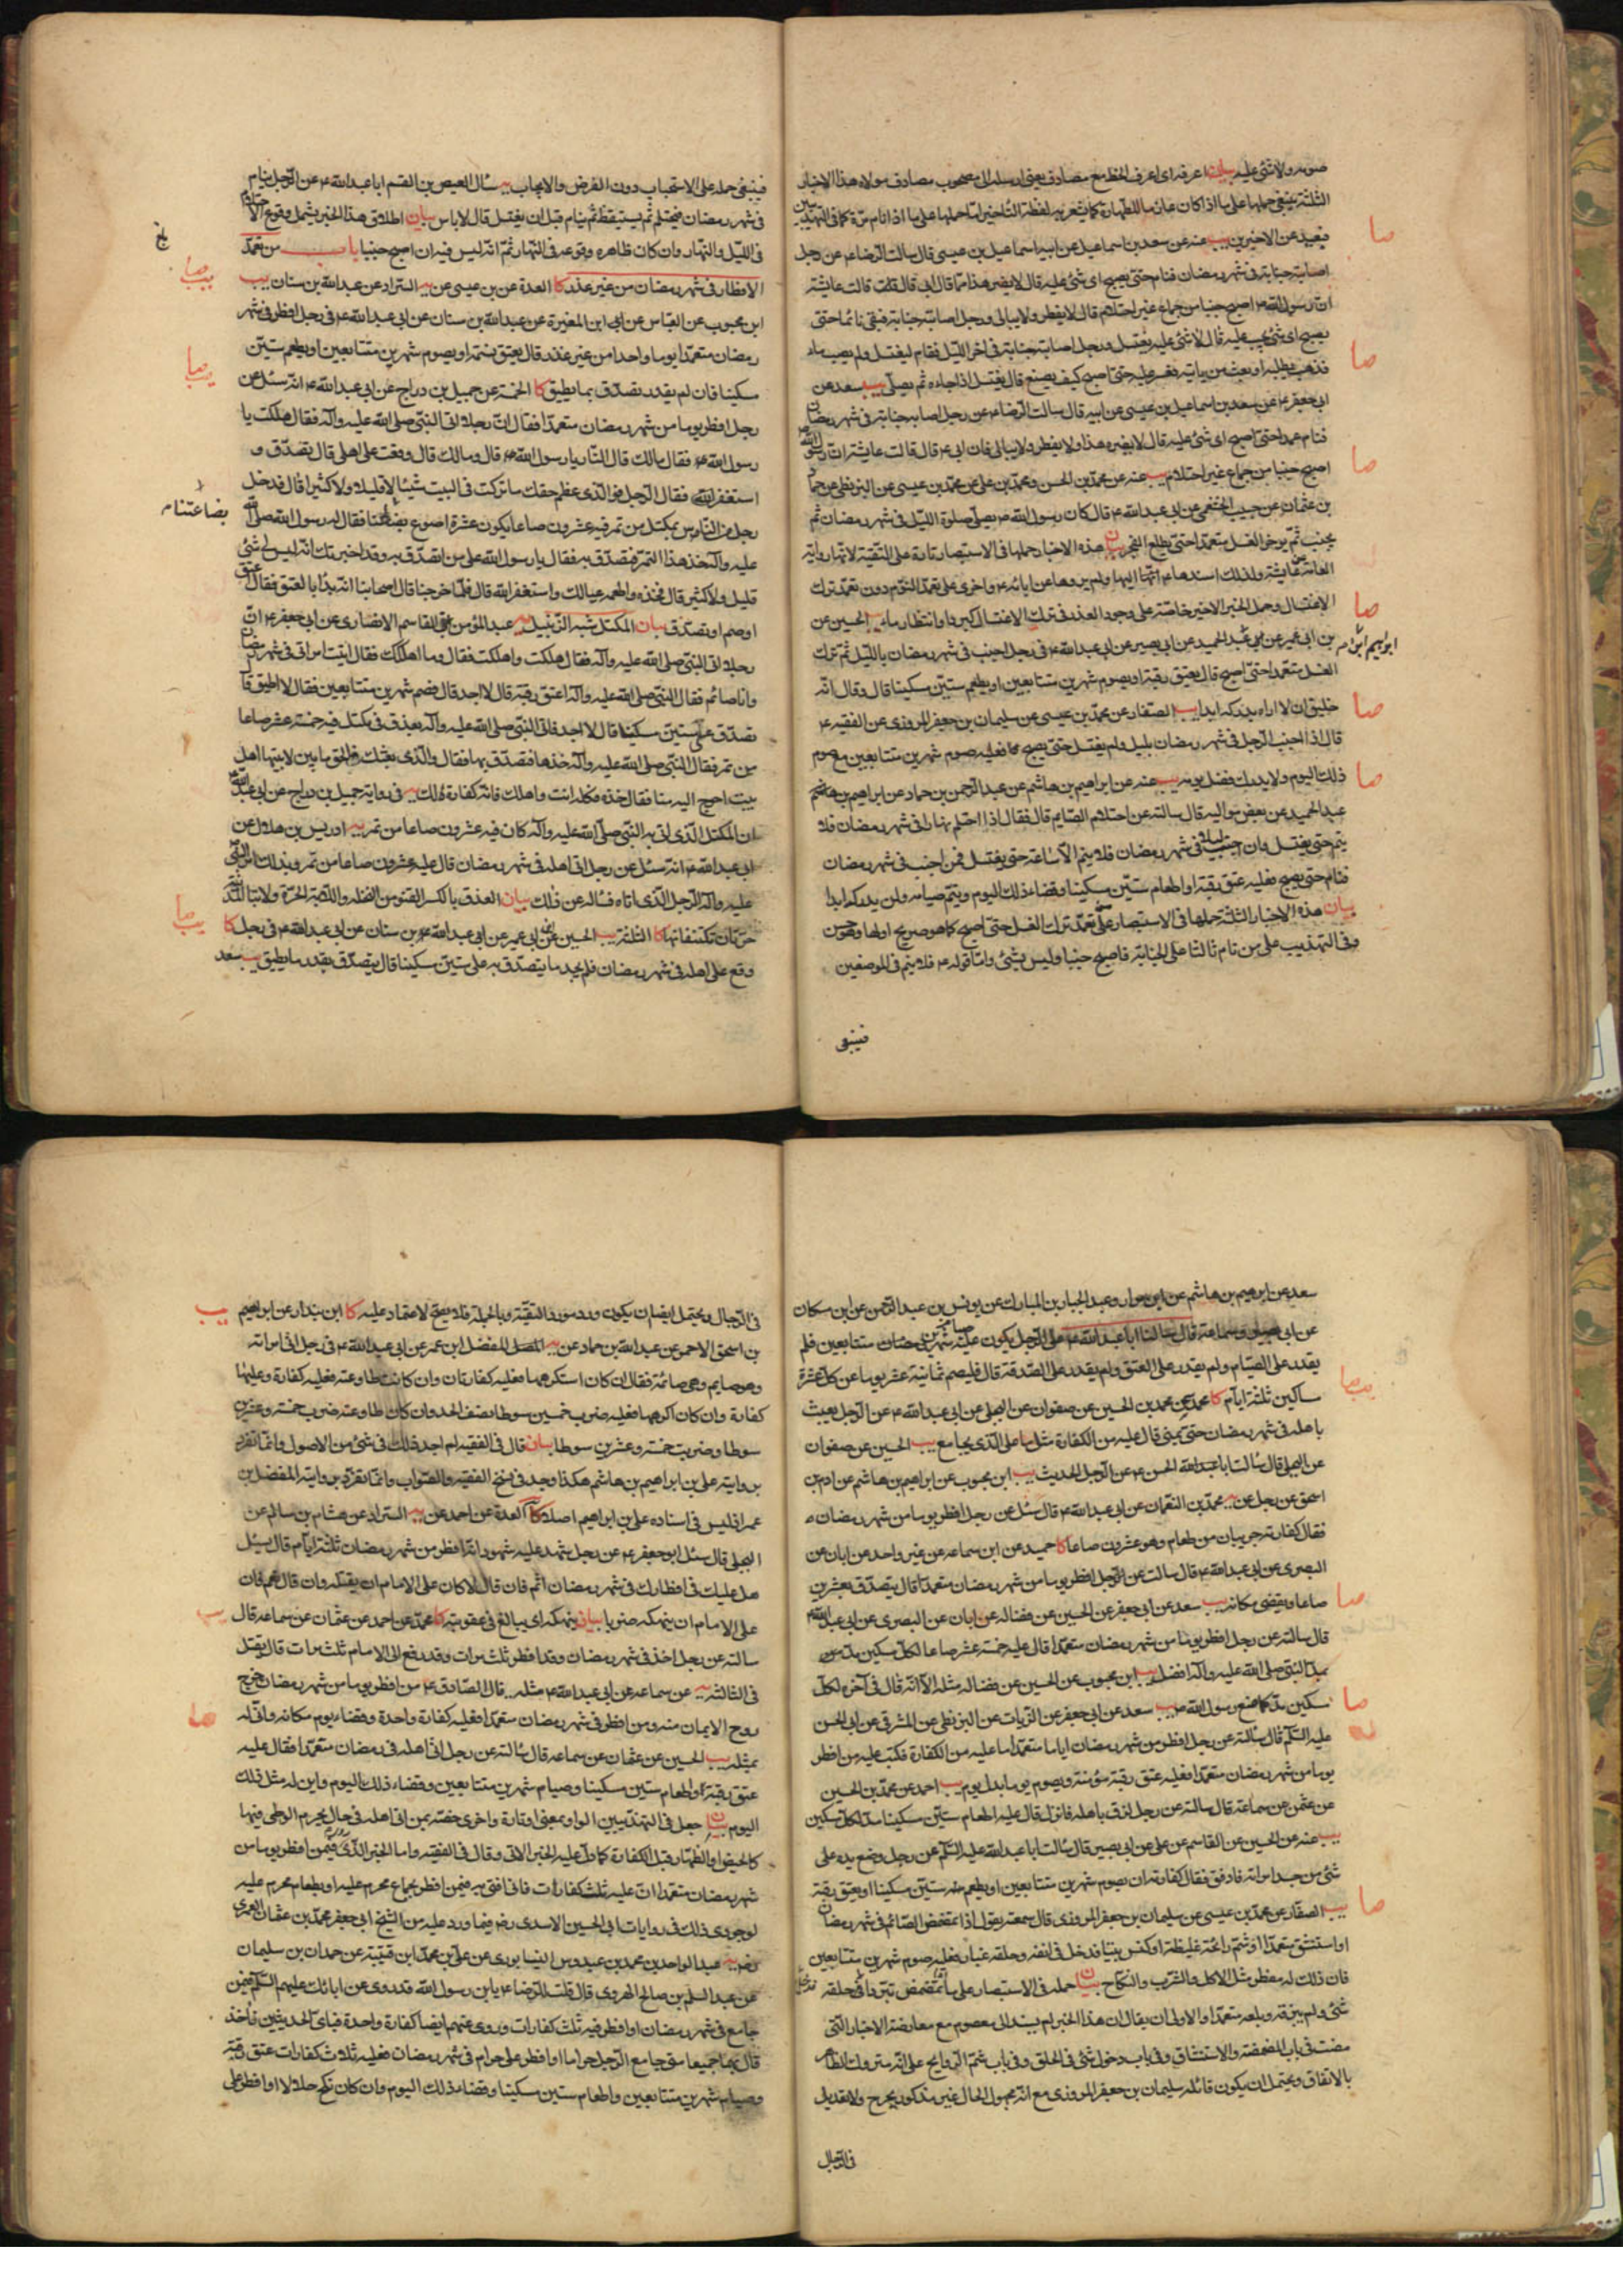 صومه ولا شئ عليه بيان اعرفه اى اعرف الخط مع مصادف يعنى ارسله الى معصوب مصادف مولاه هذا الاخبار
الثلثة ينبغى حملها على ما اذا كان عازما للطهارة كما يشعر به لفظة التاخير او حملها على ما اذا نام مرة كما فى التهذيبين
فبعيد عن الاخيرين يب عنه عن سعد بن اسماعيل عن ابيه اسماعيل بن عيسى قال سالت الرضا ع عن رجل
اصابته جنابة فى شهر رمضان فنام حتى يصبح اى شئ عليه قال لا يضره هذا فان ابى قال قالت عايشة
ان رسول الله ص اصبح جنبا من جماع غير احتلام قال لا يفطر ولا يبالى ورجل اصابته جنابة فبقى نائما حتى
يصبح اى شئ يجب عليه قال لا شئ عليه يغتسل ورجل اصابته جنابة فى اخر الليل فقام ليغتسل ولم يصب ماء
فذهب يطلبه او بعث من ياتيه فعسر عليه حتى اصبح كيف يصنع قال يغتسل اذا جاءه ثم يصلى يب سعد عن
ابى جعفر عن سعد بن اسماعيل بن عيسى عن ابيه قال سالت الرضا ع عن رجل اصابه جنابة فى شهر رمضان
فنام عمدا حتى اصبح اى شئ عليه قال لا يضره هذا ولا يفطر ولا يبالى فان ابى ع قال قالت عايشة ان رسول الله
اصبح جنبا من جماع غير احتلام يب عنه عن محمد بن الحسن ومحمد بن على عن محمد بن عيسى عن البزنطى عن حماد
بن عثمان عن حبيب الخثعمى عن ابى عبد الله ع قال كان رسول الله ص يصلى صلوة الليل فى شهر رمضان ثم
يجنب ثم يؤخر الغسل متعمدا حتى يطلع الفجر بيان هذه الاخبار حملها فى الاستبصار تارة على التقية لانها رواية
العامة عن عايشة ولذلك اسندها ائمتنا اليها ولم يرووها عن ابائه ع واخرى على تعمد النوم دون تعمد ترك
الاغتسال وحمل الخبر الاخير خاصة على وجود العذر فى ترك الاغتسال كبرد او انتظار ماء يب الحسين عن
بن ابى عمير عن ابى عبد الحميد عن ابى بصير عن ابى عبد الله ع فى رجل اجنب فى شهر رمضان بالليل ثم ترك
الغسل متعمدا حتى اصبح قال يعتق رقبة او يصوم شهرين متتابعين او يطعم ستين مسكينا قال وقال انه
خليق ان لا اراه يدركه ابدا يب الصفار عن محمد بن عيسى عن سليمان بن جعفر المروزى عن الفقيه ع
قال اذا اجنب الرجل فى شهر رمضان بليل ولم يغتسل حتى يصبح فعليه صوم شهرين متتابعين مع صوم
ذلك اليوم ولا يدرك فضل يومه يب عنه عن ابراهيم بن هاشم عن عبد الرحمن بن حماد عن ابراهيم بن
عبد الحميد عن بعض مواليه قال سالته عن احتلام الصايم قال فقال اذا احتلم نهارا فى شهر رمضان فلا
ينم حتى يغتسل وان اجنب ليلا فى شهر رمضان فلا ينم الا ساعة حتى يغتسل فمن اجنب فى شهر رمضان
فنام حتى يصبح فعليه عتق رقبة او اطعام ستين مسكينا وقضاء ذلك اليوم ويتم صيامه ولن يدركه ابدا
بيان هذه الاخبار الثلثة حملها فى الاستبصار على تعمد ترك الغسل حتى اصبح كما هو صريح اولها
وفى التهذيب على من نام ثالثا على الجنابة فاصبح جنبا وليس بشئ واما قوله ع فلا ينم فى الموضعين
فينبغى
فينبغى حمله على الاستحباب دون الفرض والايجاب يه سئال العيص بن القسم ابا عبد الله ع عن الرجل ينام
فى شهر رمضان فيحتلم ثم يستيقظ ثم ينام قبل ان يغتسل قال لا باس بيان اطلاق هذا الخبر يشمل وقوع الاحتلام
فى الليل والنهار وان كان ظاهره وقوعه فى النهار ثم انه ليس فيه ان اصبح جنبا باب من تعمد
الافطار فى شهر رمضان من غير عذر كا العدة عن بن عيسى عن يه السراد عن عبد الله بن سنان يب
ابن محبوب عن العباس عن ابن المغيرة عن عبد الله بن سنان عن ابى عبد الله ع فى رجل افطر فى شهر
رمضان متعمدا يوما واحدا من غير عذر قال يعتق نسمة او يصوم شهرين متتابعين او يطعم ستين
مسكينا فان لم يقدر تصدق بما يطيق كا الخمسة عن جميل بن دراج عن ابى عبد الله ع انه سئل عن
رجل افطر يوما من شهر رمضان متعمدا فقال ان رجلا اتى النبى صلى الله عليه وآله فقال هلكت يا
رسول الله ص فقال مالك قال النار يا رسول الله ص قال ومالك قال وقعت على اهلى قال تصدق و
استغفر الله فقال الرجل فوالذى عظم حقك ما تركت فى البيت شيئا لا قليلا ولا كثيرا قال فدخل
رجل من الناس بمكتل من تمر فيه عشرون صاعا يكون عشرة اصوع بصاعنا فقال له رسول الله صلى الله
عليه وآله خذ هذا التمر فتصدق به فقال يا رسول الله على من اتصدق به وقد اخبرتك انه ليس لى شئ
قليل ولا كثير قال فخذه واطعمه عيالك واستغفر الله قال فلما خرجنا قال اصحابنا انه بدأ بالعتق فقال اعتق
او صم او تصدق بيان المكتل شبه الزنبيل يه عبد المؤمن بن القاسم الانصارى عن ابى جعفر ع ان
رجلا اتى النبى صلى الله عليه وآله فقال هلكت واهلكت فقال وما اهلكك فقال اتيت امراتى فى شهر رمضان
وانا صائم فقال النبى صلى الله عليه وآله اعتق رقبة قال لا اجد قال فصم شهرين متتابعين فقال لا اطيق قال
تصدق على ستين مسكينا قال لا اجد فاتى النبى صلى الله عليه وآله بعذق فى مكتل فيه خمسة عشر صاعا
من تمر فقال النبى صلى الله عليه وآله خذها فتصدق بها فقال والذى بعثك بالحق ما بين لابتيها اهل
بيت احوج اليه منا فقال خذه فكله انت واهلك فانه كفارة لك يه فى رواية جميل بن دراج عن ابى عبد الله
ان المكتل الذى اتى به النبى صلى الله عليه وآله كان فيه عشرون صاعا من تمر يه ادريس بن هلال عن
ابى عبد الله ع انه سئل عن رجل اتى اهله فى شهر رمضان قال عليه عشرون صاعا من تمر وبذلك امر النبى
عليه وآله الرجل الذى اتاه فساله عن ذلك بيان العذق بالكسر القنو من النخلة واللابة الحرة ولابتا المدينة
حرتان تكتنفانها كا الثلثة يب الحسين عن ابن ابى عمير عن ابى عبد الله بن سنان عن ابى عبد الله ع فى رجل كا
وقع على اهله فى شهر رمضان فلم يجد ما يتصدق به على ستين مسكينا قال يتصدق بقدر ما يطيق يب سعد
بصاعتنا م
ابرهيم ابن ام
سعد عن ابرهيم بن هاشم عن ابن مرار وعبد الجبار بن المبارك عن يونس بن عبد الرحمن عن ابن مسكان
عن ابى بصير وسماعة قال سالنا ابا عبد الله ع عن الرجل يكون عليه صيام شهرين متتابعين فلم
يقدر على الصيام ولم يقدر على العتق ولم يقدر على الصدقة قال فليصم ثمانية عشر يوما عن كل عشرة
مساكين ثلثة ايام كا محمد عن محمد بن الحسين عن صفوان عن البجلى عن ابى عبد الله ع عن الرجل يعبث
باهله فى شهر رمضان حتى يمنى قال عليه من الكفارة مثل ما على الذى يجامع يب الحسين عن صفوان
عن البجلى قال سألت ابا عبد الله ع عن الرجل الحديث يب ابن محبوب عن ابراهيم بن هاشم عن ادم بن
اسحق عن رجل عن يه محمد بن النعمان عن ابى عبد الله ع قال سئل عن رجل افطر يوما من شهر رمضان
فقال كفارته جريبان من طعام وهو عشرون صاعا كا حميد عن ابن سماعه عن غير واحد عن ابان عن
البصرى عن ابى عبد الله ع قال سالت عن الرجل افطر يوما من شهر رمضان متعمدا قال يتصدق بعشرين
صاعا ويقضى مكانه يب سعد عن ابى جعفر عن الحسين عن فضاله عن ابان عن البصرى عن ابى عبد الله
قال سالته عن رجل افطر يوما من شهر رمضان متعمدا قال عليه خمسة عشر صاعا لكل مسكين مد
بمد النبى صلى الله عليه وآله افضل يب ابن محبوب عن الحسين عن فضاله مثله الا انه قال فى آخره لكل
مسكين مد كما صنع رسول الله ص يب سعد عن ابى جعفر عن الزيات عن البزنطى عن المشرقى عن ابى الحسن
عليه السلم قال سالته عن رجل افطر من شهر رمضان اياما متعمدا ما عليه من الكفارة فكتب عليه من افطر
يوما من شهر رمضان متعمدا فعليه عتق رقبة مؤمنة ويصوم يوما بدل يوم يب احمد عن محمد بن الحسين
عن عثمن عن سماعة قال سالته عن رجل لزق باهله فانزل قال عليه اطعام ستين مسكينا مد لكل مسكين
يب عنه عن الحسين عن القاسم عن على عن ابى بصير قال سالت ابا عبد الله عليه السلم عن رجل وضع يده على
شئ من جسد امراته فادفق فقال كفارته ان يصوم شهرين متتابعين او يطعم ستين مسكينا او يعتق رقبة
يب الصفار عن محمد بن عيسى عن سليمان بن جعفر المروزى قال سمعته يقول اذا تمضمض الصائم فى شهر رمضان
او استنشق متعمدا او شم رائحة غليظة او كنس بيتا فدخل فى انفه وحلقه غبار فعليه صوم شهرين متتابعين
فان ذلك له مفطر مثل الاكل والشرب والنكاح بيان حمله فى الاستبصار على ما تمضمض تبردا فدخل حلقه
شئ ولم يبزقه وبلعه متعمدا والاولى ان يقال ان هذا الخبر لم يسند الى معصوم مع معارضة الاخبار التى
مضت فى باب المضمضة والاستنشاق وفى باب دخول شئ فى الحلق وفى باب شم الروايح على انه متروك الظاهر
بالاتفاق ويحتمل ان يكون قائله سليمان بن جعفر المروزى مع انه مجهول الحال غير مذكور بجرح ولا تعديل
فى الرجال
فى الرجال ويحتمل ايضا ان يكون ورد مورد التقية وبالجملة فلا يصح الاعتماد عليه كا ابن بندار عن ابراهيم
بن اسحق الاحمر عن عبد الله بن حماد عن يه المفضل بن عمر عن ابى عبد الله ع فى رجل اتى امراته
وهو صايم وهى صائمة فقال ان كان استكرهها فعليه كفارتان وان كانت طاوعته فعليه كفارة وعليها
كفارة وان كان اكرهها فعليه ضرب خمسين سوطا نصف الحد وان كان طاوعته ضرب خمسة وعشرين
سوطا وضربت خمسة وعشرين سوطا بيان قال فى الفقيه لم اجد ذلك فى شئ من الاصول وانما تفرد
بروايته على بن ابراهيم بن هاشم هكذا وجد فى نسخ الفقيه والصواب وانما تفرد بروايته المفضل بن
عمر اذ ليس فى اسناده على بن ابراهيم اصلا كا العدة عن احمد عن يه السراد عن هشام بن سالم عن
العجلى قال سئل ابو جعفر ع عن رجل شهد عليه شهود انه افطر من شهر رمضان ثلثة ايام قال يسئل
هل عليك فى افطارك فى شهر رمضان اثم فان قال لا كان على الامام ان يقتله وان قال نعم فان
على الامام ان ينهكه ضربا بيان ينهكه اى يبالغ فى عقوبته كا محمد عن احمد عن عثمان عن سماعه قال
سالته عن رجل اخذ فى شهر رمضان وقد افطر ثلث مرات وقد رفع الى الامام ثلث مرات قال يقتل
فى الثالثة يه عن سماعه عن ابى عبد الله ع مثله يه قال الصادق ع من افطر يوما من شهر رمضان خرج
روح الايمان منه ومن افطر فى شهر رمضان متعمدا فعليه كفارة واحدة وقضاء يوم مكانه وانى له
بمثله يب الحسين عن عثمان عن سماعه قال سالته عن رجل اتى اهله فى رمضان متعمدا فقال عليه
عتق رقبة او اطعام ستين مسكينا وصيام شهرين متتابعين وقضاء ذلك اليوم واين له مثل ذلك
اليوم بيان جعل فى التهذيبين الواو بمعنى او تارة واخرى خصه بمن اتى اهله فى حال يحرم الوطى فيها
كالحيض او الظهار قبل الكفارة كما دل عليه الخبر الاتى وقال فى الفقيه واما الخبر الذى روى فيمن افطر يوما من
شهر رمضان متعمدا ان عليه ثلث كفارات فانى افتى به فيمن افطر بجماع محرم عليه او بطعام محرم عليه
لوجودى ذلك فى روايات ابى الحسين الاسدى رضى فيما ورد عليه من الشيخ ابى جعفر محمد بن عثمان العمرى
رضى يه عبد الواحد بن محمد بن عبدوس النيسابورى عن على بن محمد ابن قتيبة عن حمدان بن سليمان
عن عبد السلم بن صالح الهروى قال قلت للرضا ع يابن رسول الله قد روى عن ابائك عليهم السلم فيمن
جامع فى شهر رمضان او افطر فيه ثلث كفارات وروى عنهم ايضا كفارة واحدة فباى الحديثين ناخذ
قال بهما جميعا متى جامع الرجل حراما او افطر على حرام فى شهر رمضان فعليه ثلاث كفارات عتق رقبة
وصيام شهرين متتابعين واطعام ستين مسكينا وقضاء ذلك اليوم وان كان نكح حلالا او افطر على